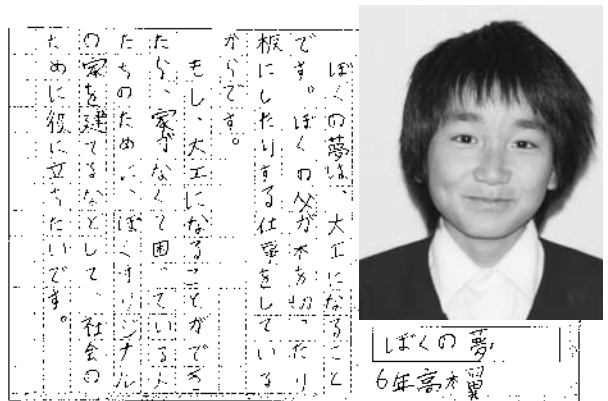 ぼくの夢
6年高木翼
ぼくの夢は、大工になること
です。ぼくの父が木を切ったり
板にしたりする仕事をしている
からです。
もし、大工になることができ
たら、家がなくて困っている人
たちのために、ぼくオリジナル
の家を建てるなどして、社会の
ために役に立ちたいです。